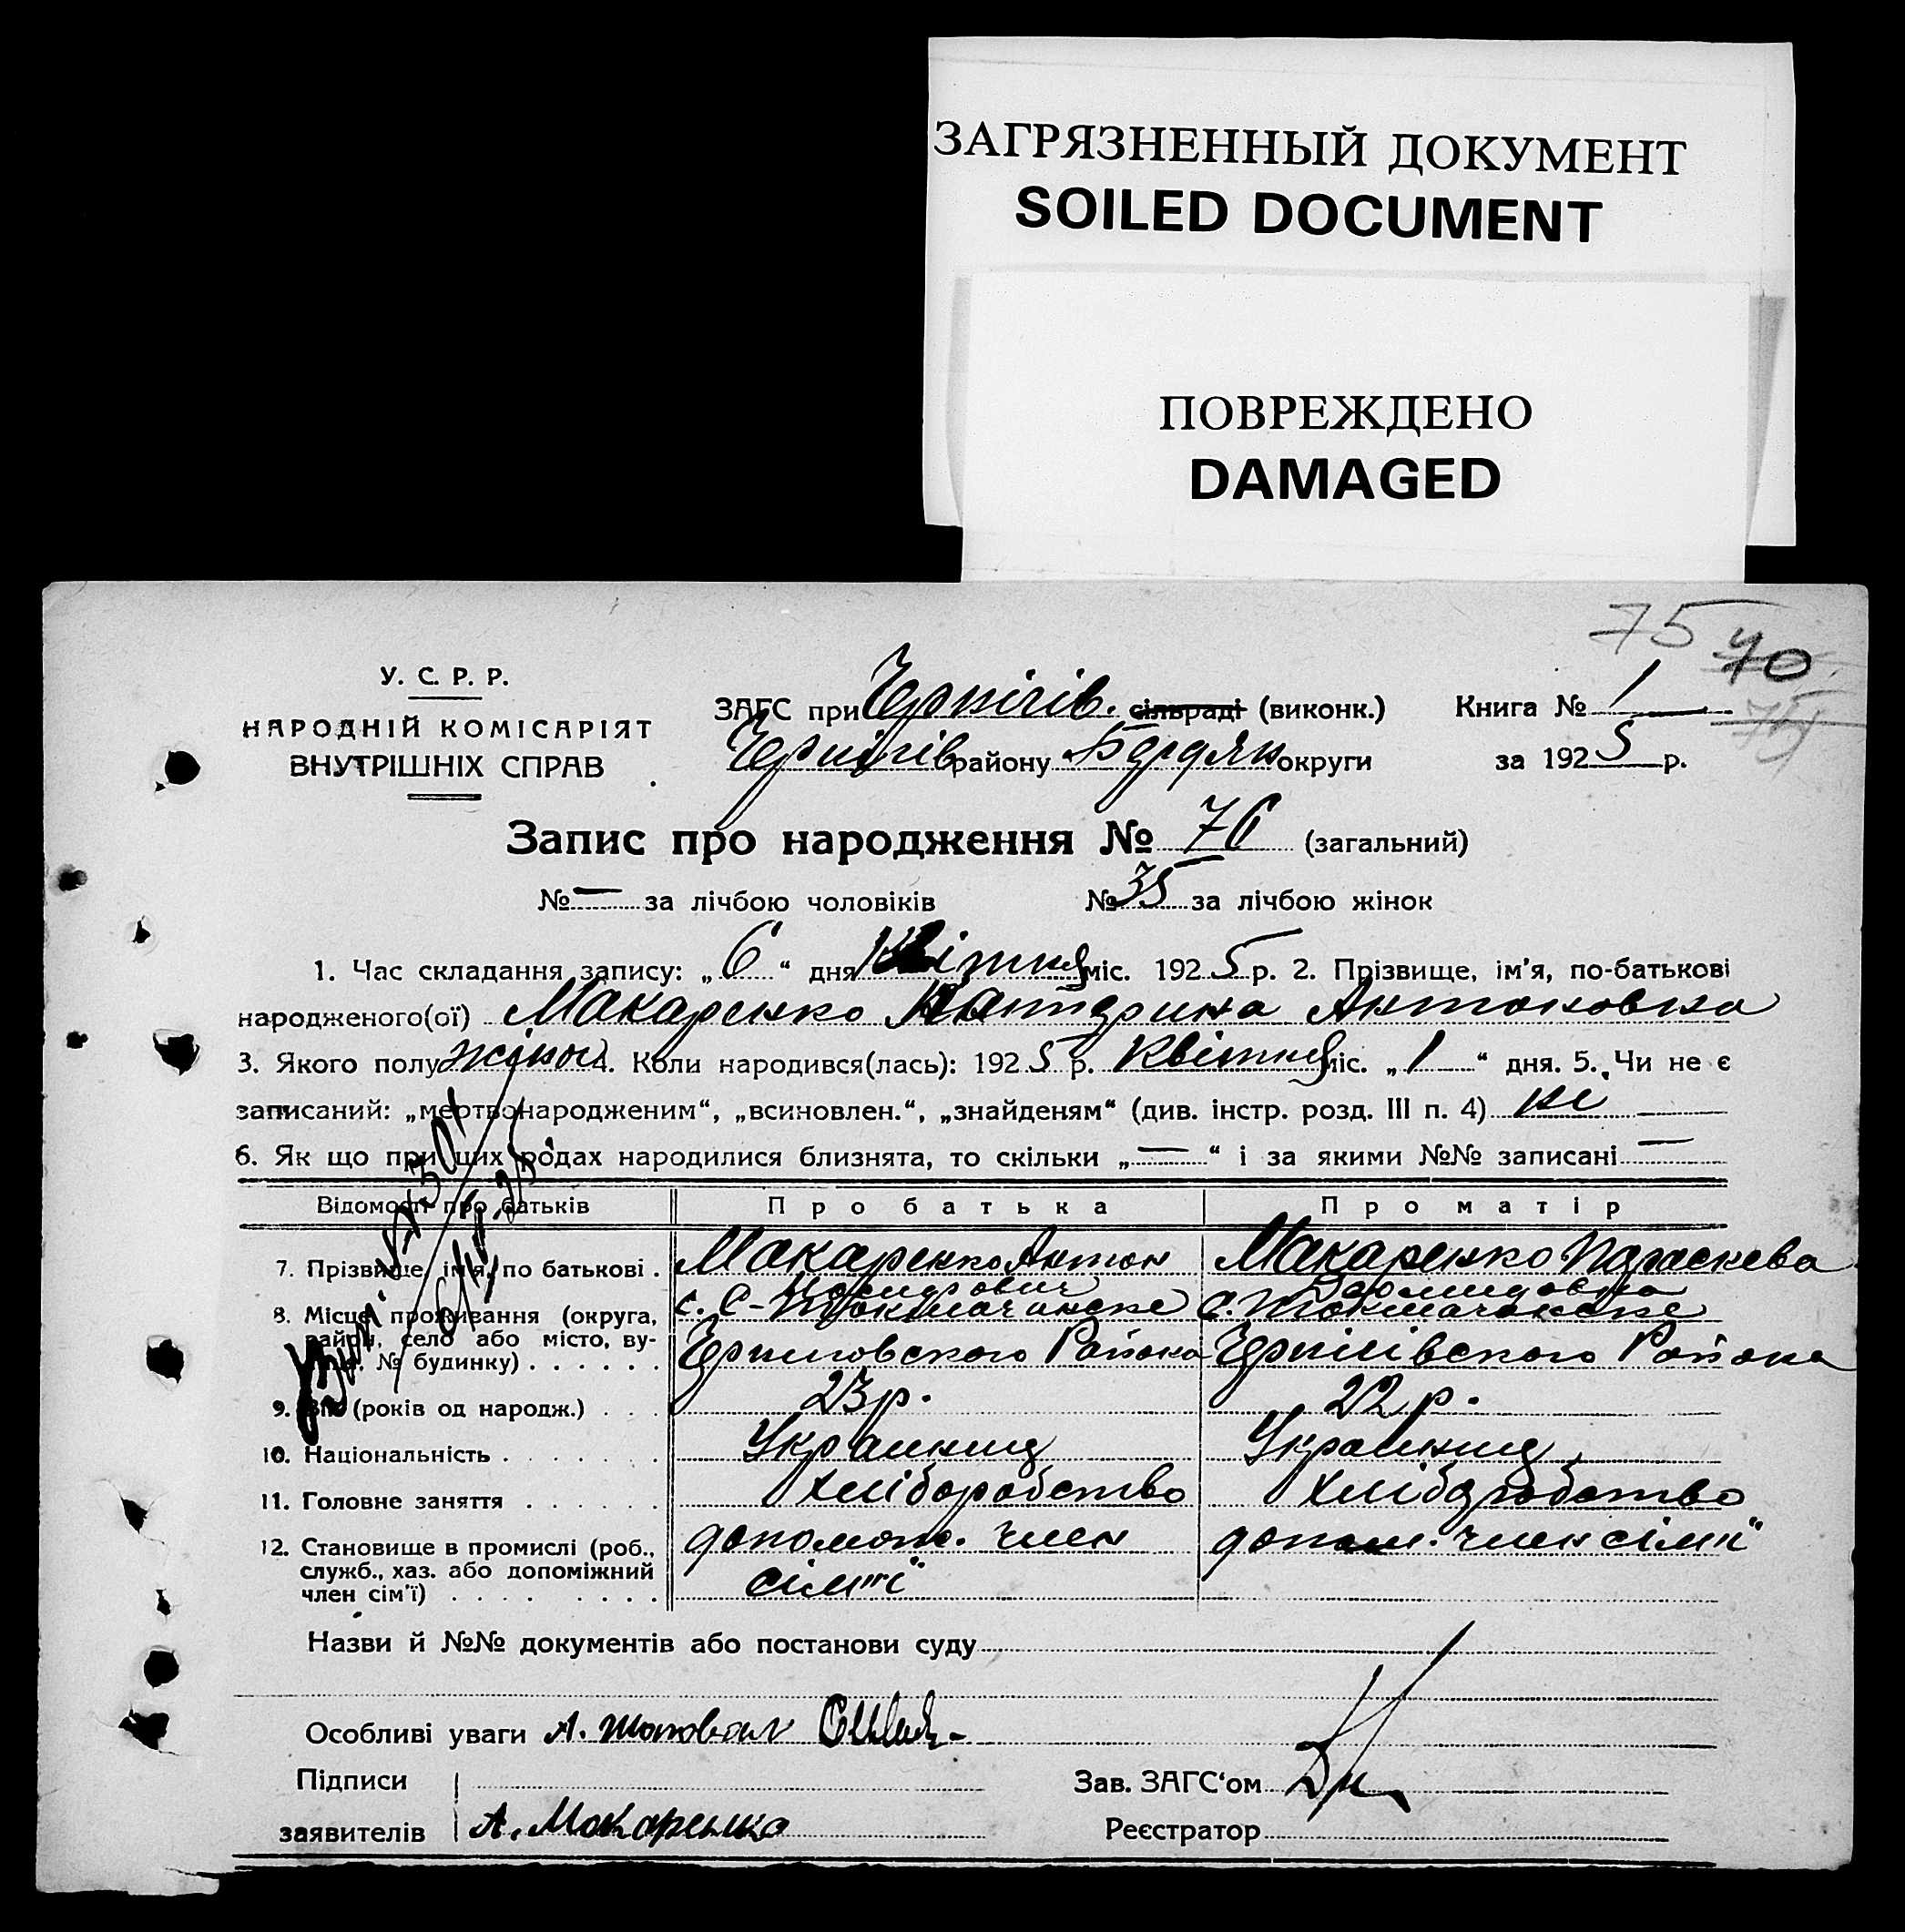 ЗАГРЯЗНЕННЫЙ ДОКУМЕНТ
SOILED DOCUMENT
ПОВРЕЖДЕНО
DAMAGED
75 70
75
У. С. Р. Р.
НАРОДНІЙ КОМІСАРІЯТ
ВНУТРІШНІХ СПРАВ
ЗАГС при Чернігів. сільраді (виконк.) Книга № 1
Чернігів району Бердян округи за 1925 р.
Запис про народження № 76 (загальний)
№ — за лічбою чоловіків № 35 за лічбою жінок
1. Час складання запису: „6“ дня Квітня міс. 1925 р. 2. Прізвище, ім'я, по-батькові
народженого(ої) Макаренко Катерина Антоновна
3. Якого полу жіноч 4. Коли народився(лась): 1925 р. Квітня міс. „1“ дня. 5. Чи не є
записаний: „мертвонародженим“, „всиновлен.“, „знайденям“ (див. інстр. розд. III п. 4) не
6. Як що при цих родах народилися близнята, то скільки „—“ і за якими №№ записані —
Відомості про батьків Про батька Про матір
7. Прізвище, ім'я, по батькові . Макаренко Антон Макаренко Параскева
8. Місце проживання (округа, район, село або місто, ву- № будинку) с. С-Токмачанске с. Токмачанске
Черниговского Района Чернігівского Района
9. Вік (років од народж.) 23 р. 22 р.
10. Національність Украинец Украинец
11. Головне заняття Хліборобство Хліборобство
12. Становище в промислі (роб., служб., хаз. або допоміжний член сім'ї) допомож. член сімї допом. член сімї
Назви й №№ документів або постанови суду
Особливі уваги А. Шаповал
Підписи Зав. ЗАГС'ом
заявителів А. Макаренко Реєстратор